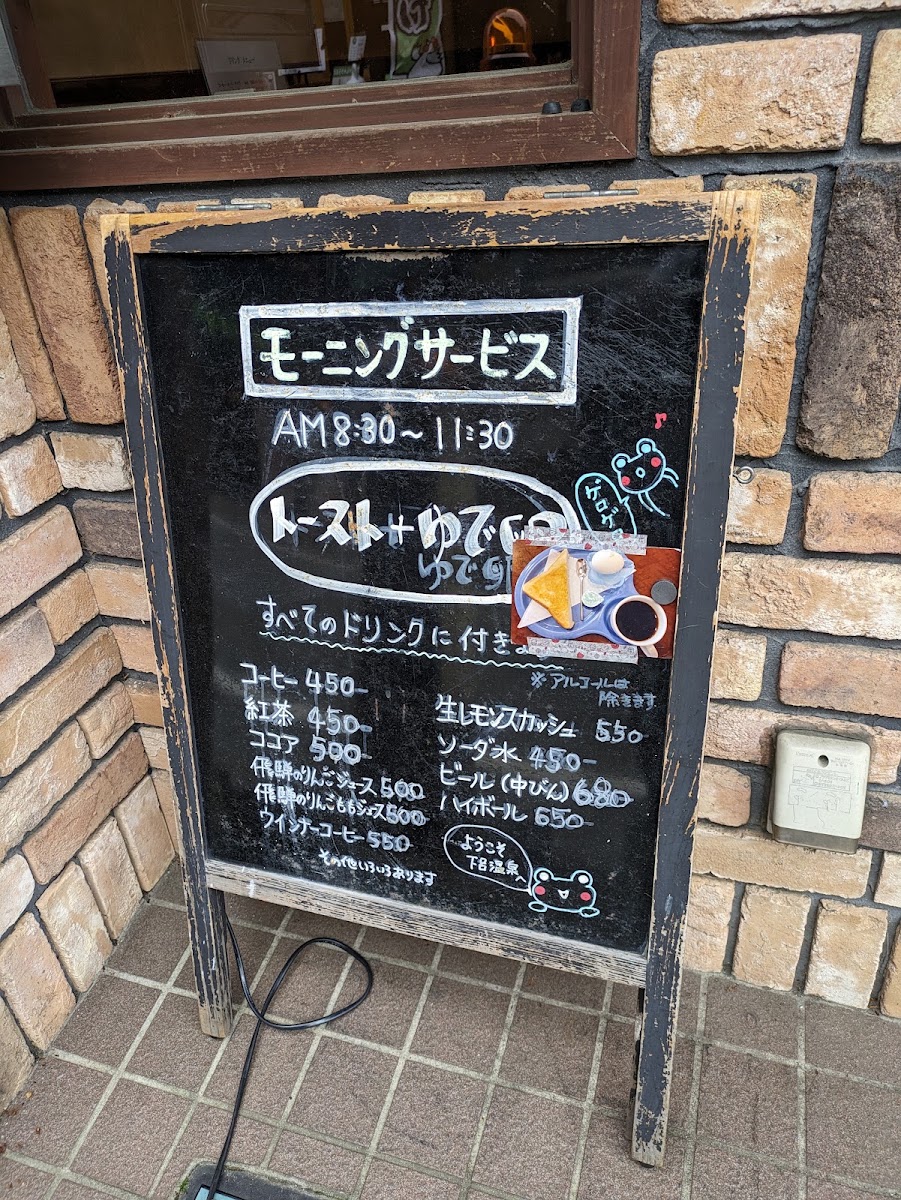 モーニングサービス
AM 8:30～11:30
トースト+ゆで卵
ゆで卵
ゲロゲロ
すべてのドリンクに付きます
※アルコールは
除きます
コーヒー 450-
紅茶 450-
ココア 500-
飛騨のりんごジュース 500
飛騨のりんごももジュース 500
ウインナーコーヒー 550
その他いろいろあります
生レモンスカッシュ 550
ソーダ水 450-
ビール(中びん) 680
ハイボール 650
ようこそ
下呂温泉へ